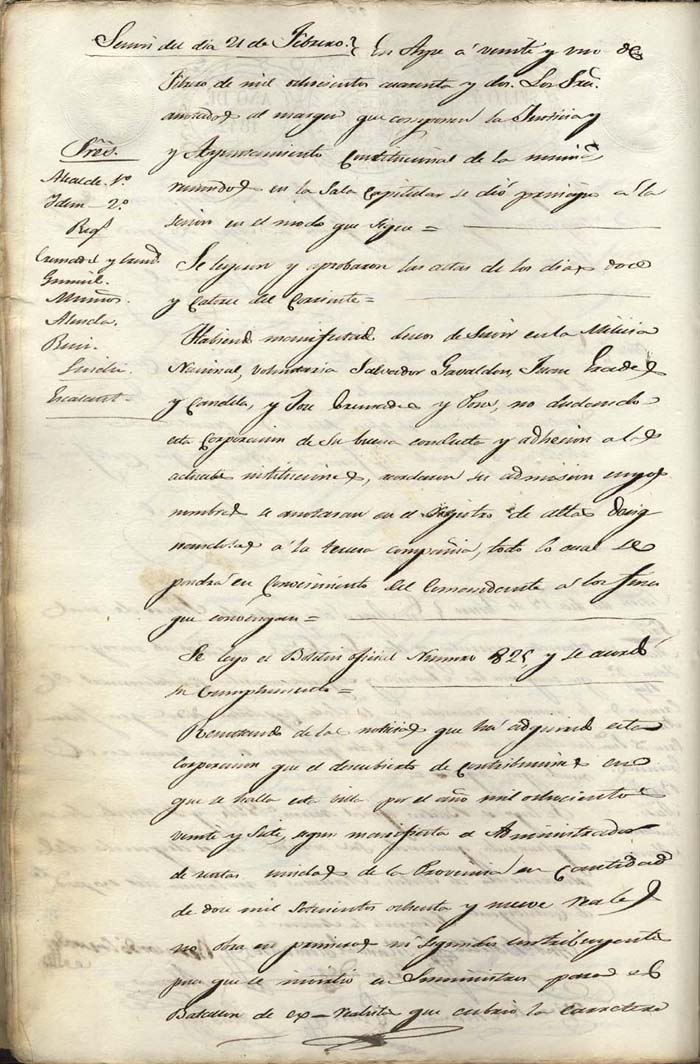 Sesion del dia 21 de Febrero. En Aspe á veinte y uno de
Febrero de mil ochocientos cuarenta y dos. Los Sres.
anotados al margen que componen la Justicia y
y Ayuntamiento Constitucional de la misma
reunidos en la Sala Capitular se dió principio á la
sesion en el modo que sigue =
Sres.
Alcalde 1º
Idem 2º
Regs
Cremades y
Muños
Almela
Escalant
Se leyeron y aprobaron las actas de los dias doce
y catorce del corriente =
Habiendo manifestado deseos de Servir en la Milicia
Nacional, voluntaria Salvador Gavaldon, Juan
y Candela, y Jose Cremades y , no dudando
esta Corporacion de su buena conducta y adhesion a las
actuales instituciones, acordaron su admision cuyos
nombres se anotaran en el Registro de altas desig
nandolos á la tercera compañia, todo lo cual se
pondrá en Conocimiento del Comandante a los fines
que convengan =
Se leyo el Boletin oficial Numero 825 y se acordó
su Cumplimiento =
Resultando de las noticias que ha adquirido esta
Corporacion que el descubierto de Contribuciones en
que se halla esta villa por el año mil ochocientos
veinte y siete, segun manifiesta el Administrador
de rentas unidas de la Provincia en Cantidad
de doce mil setecientos ochenta y nueve reales
no obra en primeros ni segundos contribuyentes
pues que se invirtio en Suministros para el
Batallon de ex-realistas que cubrio la carretera